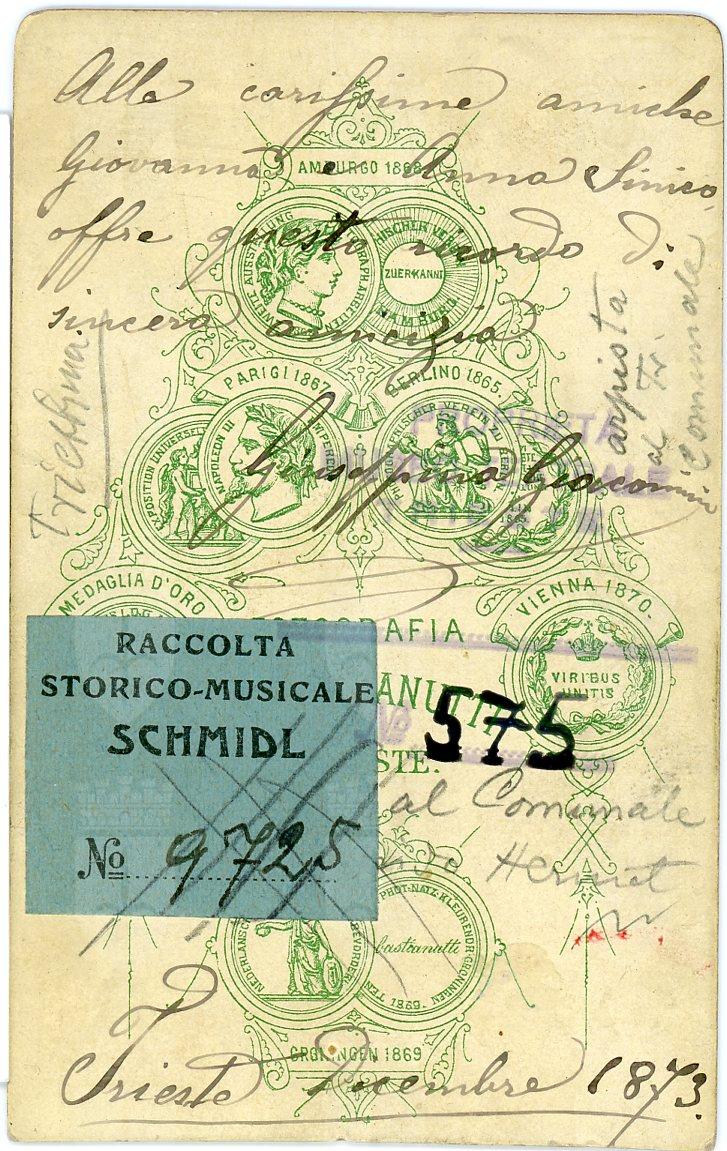 Alle carissime amiche
Giovanna e Anna Sinico
offre questo ricordo di
sincera amicizia
Giuseppina Giacomini
Triestina
arpista
al Tr
Comunale
AMBURGO 1868
ZUERKANNT
PARIGI 1867
BERLINO 1865.
EXPOSITION UNIVERSELLE
NAPOLEON III
PROPRIETÀ
MEDAGLIA D'ORO
VIENNA 1870.
VIRIBUS
UNITIS
FOTOGRAFIA
RACCOLTA
STORICO-MUSICALE
SCHMIDL
No 9725
575
al Comunale
Hermet
PHOT-NATZ-KLEURENDR-GRONINGEN
bastianutti
1869-
GRONINGEN 1869
Trieste Decembre 1873.